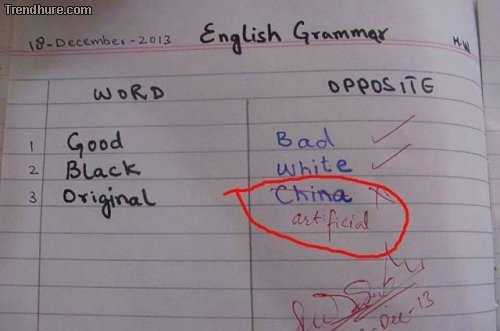 Trendhure.com
18-December-2013 English Grammar H.W
WORD OPPOSITE
1 Good Bad
2 Black White
3 Original China
artificial
Dec-13